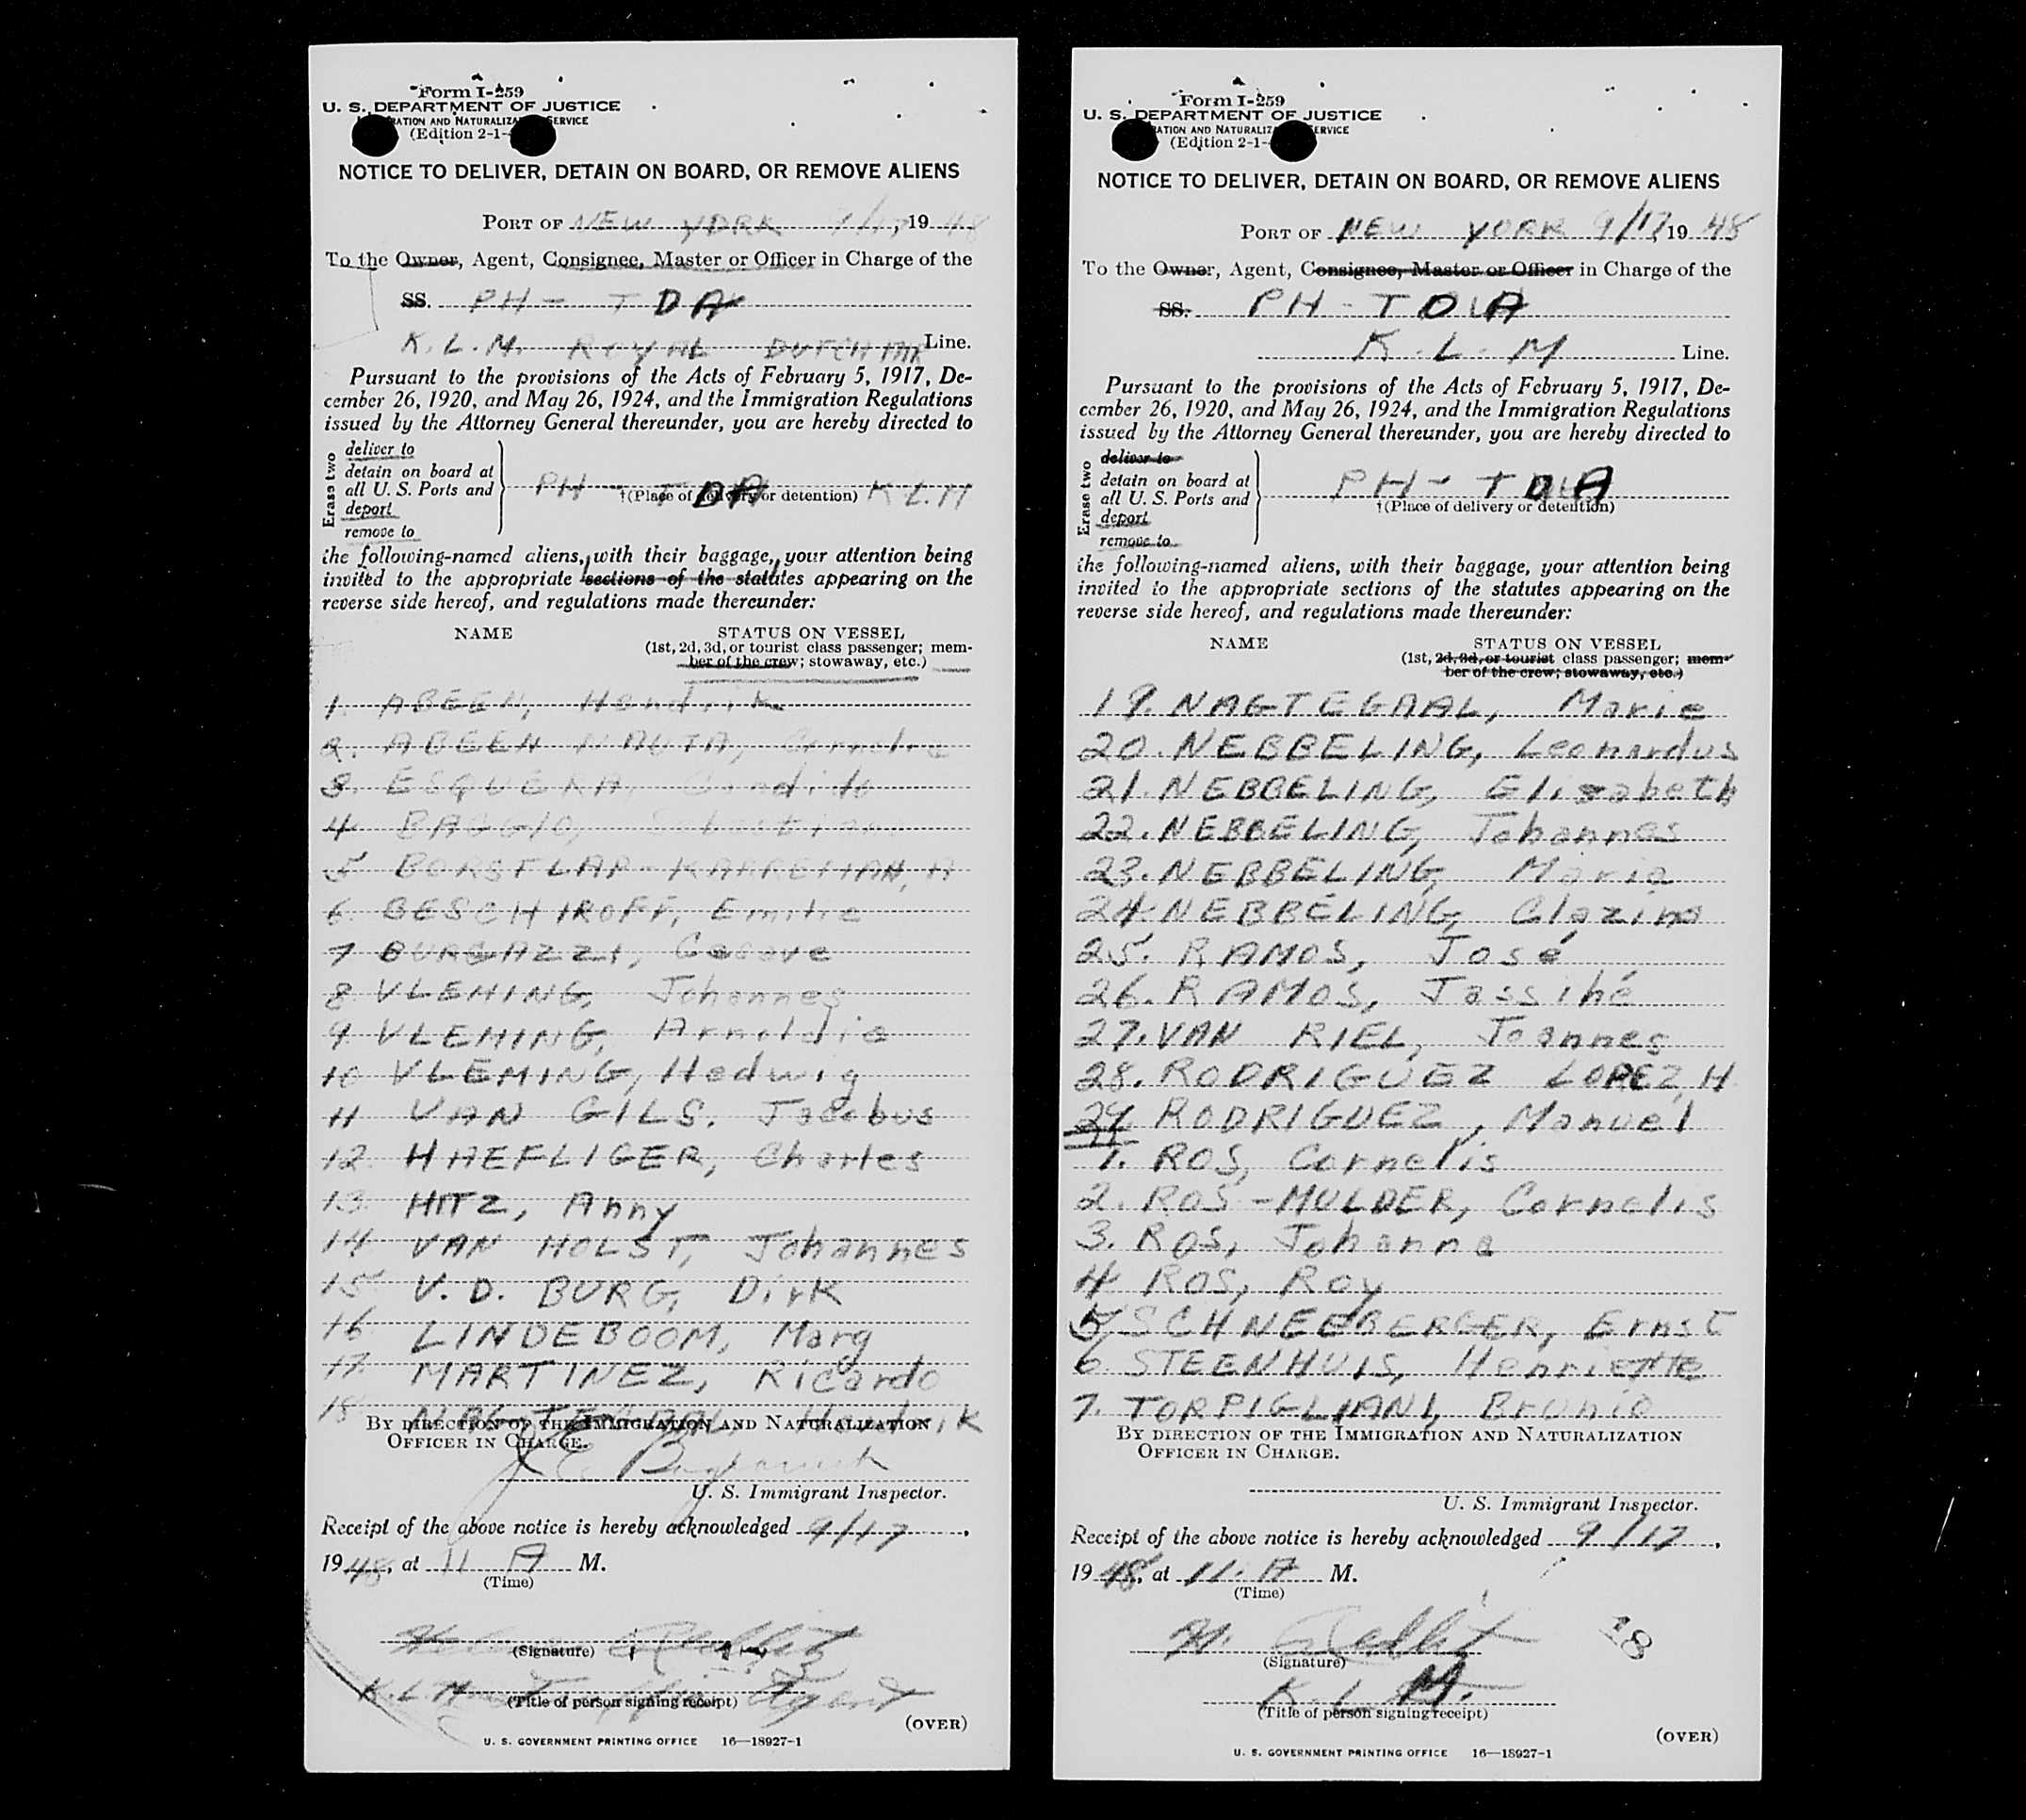 Form I-259
U. S. DEPARTMENT OF JUSTICE
RATION AND NATURALIZA SERVICE
(Edition 2-1-
NOTICE TO DELIVER, DETAIN ON BOARD, OR REMOVE ALIENS
PORT OF NEW YORK 9/17, 19 48
To the Owner, Agent, Consignee, Master or Officer in Charge of the
SS. PH - TDA
K.L.M. ROYAL DUTCH AIR Line.
Pursuant to the provisions of the Acts of February 5, 1917, De-
cember 26, 1920, and May 26, 1924, and the Immigration Regulations
issued by the Attorney General thereunder, you are hereby directed to
Erase two
deliver to
detain on board at
all U. S. Ports and
deport
remove to
PH - TDA K.L.M
†(Place of delivery or detention)
the following-named aliens, with their baggage, your attention being
invited to the appropriate sections of the statutes appearing on the
reverse side hereof, and regulations made thereunder:
NAME STATUS ON VESSEL
(1st, 2d, 3d, or tourist class passenger; mem-
ber of the crew; stowaway, etc.)
1. ABEEN, Hendrik
2. ABEEN NAUTA, Cornelia
3. ESQUERA, Candido
4 BAGGIO,
5 BORSTLAP-KARREMAN, A
6. BESCHIROFF, Emilie
7 BURGAZZI, Cesave
8 VLEMING, Johannes
9 VLEMING, Arnoldia
10 VLEMING, Hedwig
11 VAN GILS, Jacobus
12. HAEFLIGER, Charles
13. HITZ, Anny
14. VAN HOLST, Johannes
15 V. D. BURG, Dirk
16 LINDEBOOM, Marg
17. MARTINEZ, Ricardo
18 NAGTEGAAL, Hendrik
BY DIRECTION OF THE IMMIGRATION AND NATURALIZATION
OFFICER IN CHARGE.
U. S. Immigrant Inspector.
Receipt of the above notice is hereby acknowledged 9/17,
19 48, at 11 A M.
(Time)
(Signature)
K.L.M. Agent
(Title of person signing receipt)
(OVER)
U. S. GOVERNMENT PRINTING OFFICE 16—18927-1
Form I-259
U. S. DEPARTMENT OF JUSTICE
RATION AND NATURALIZ ERVICE
(Edition 2-1-
NOTICE TO DELIVER, DETAIN ON BOARD, OR REMOVE ALIENS
PORT OF NEW YORK 9/17, 19 48
To the Owner, Agent, Consignee, Master or Officer in Charge of the
SS. PH - TDA
K.L.M Line.
Pursuant to the provisions of the Acts of February 5, 1917, De-
cember 26, 1920, and May 26, 1924, and the Immigration Regulations
issued by the Attorney General thereunder, you are hereby directed to
Erase two
deliver to
detain on board at
all U. S. Ports and
deport
remove to
PH - TDA
†(Place of delivery or detention)
the following-named aliens, with their baggage, your attention being
invited to the appropriate sections of the statutes appearing on the
reverse side hereof, and regulations made thereunder:
NAME STATUS ON VESSEL
(1st, 2d, 3d, or tourist class passenger; mem-
ber of the crew; stowaway, etc.)
19. NAGTEGAAL, Marie
20. NEBBELING, Leonardus
21. NEBBELING, Elizabeth
22. NEBBELING, Johannes
23. NEBBELING, Maria
24. NEBBELING, Glazina
25. RAMOS, José
26. RAMOS, Jassihé
27. VAN RIEL, Joannes
28. RODRIGUEZ LOPEZ, H
29. RODRIGUEZ, Manuel
1. ROS, Cornelis
2. ROS-MULDER, Cornelis
3. ROS, Johanna
4 ROS, Roy
5 SCHNEEBERGER, Ernst
6 STEENHUIS, Henriette
7. TORPIGLIANI, Brunio
BY DIRECTION OF THE IMMIGRATION AND NATURALIZATION
OFFICER IN CHARGE.
U. S. Immigrant Inspector.
Receipt of the above notice is hereby acknowledged 9/17,
19 48, at 11. A M.
(Time)
(Signature)
18
K.L.M.
(Title of person signing receipt)
(OVER)
U. S. GOVERNMENT PRINTING OFFICE 16—18927-1